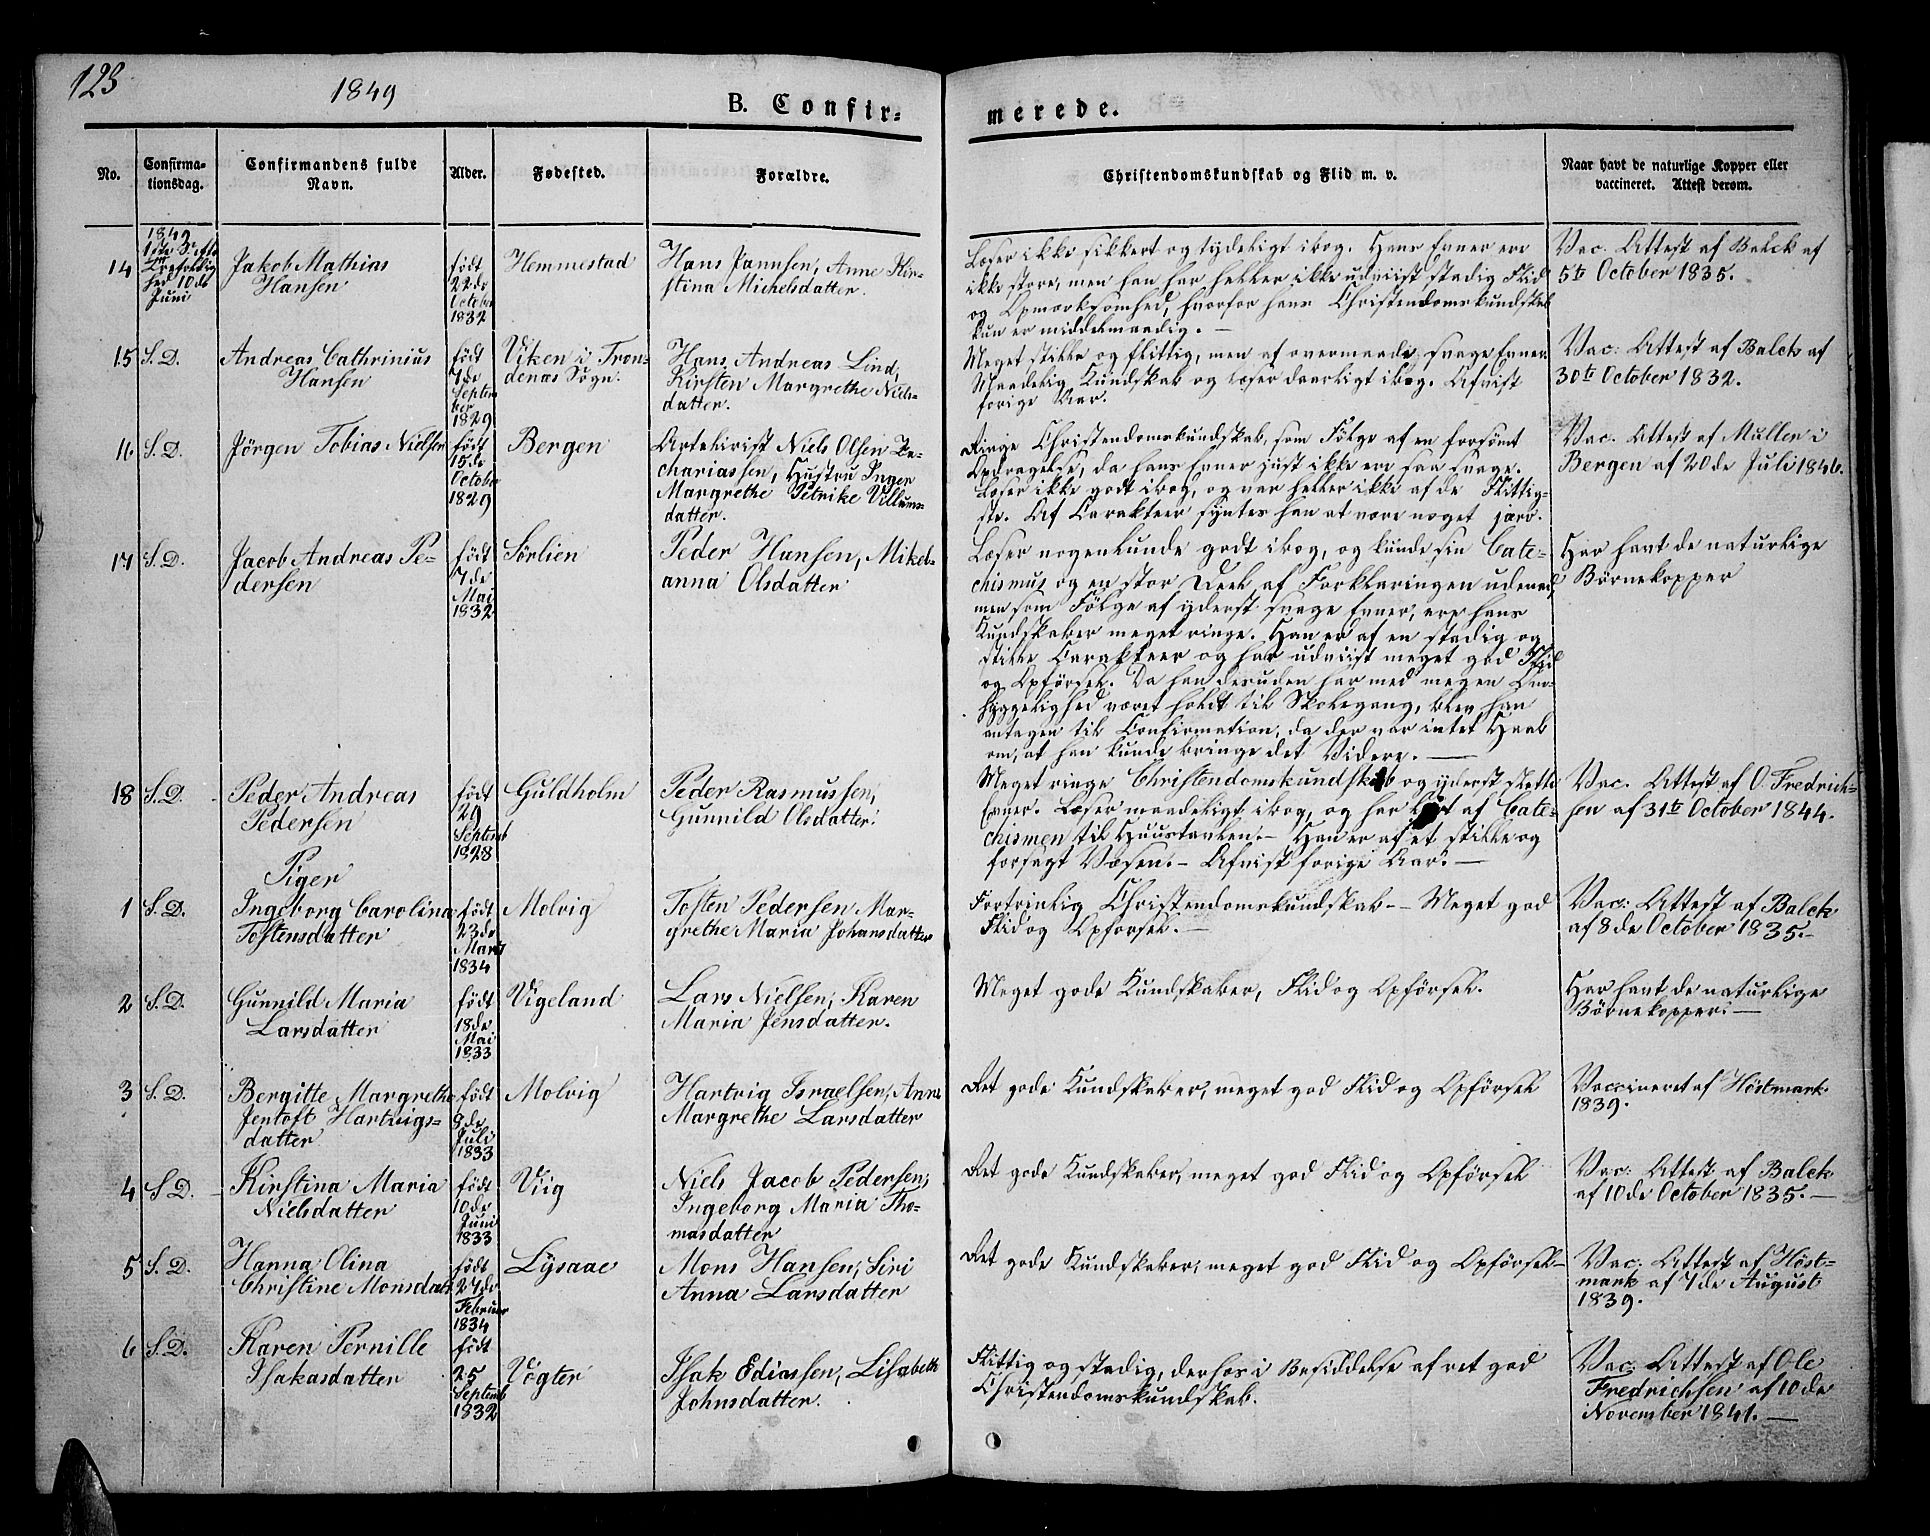 123
1849
B. Confir-
merede.
No.
Confirma-
tionsdag.
Confirmandens fulde
Navn.
Alder.
Fødested.
Forældre.
Christendomskundskab og Flid m. v.
Naar havt de naturlige Kopper eller
vaccineret. Attest derom.
14
1849
1ste S. eft.
Trefoldig
hed 10de
Juni
Jakob Mathias
Hansen
født
22de
October
1832
Hemmestad
Hans Jannsen, Anne Kir-
stina Michelsdatter.
Læser ikke sikkert og tydeligt i bog. Hans Evner ere
ikke store, men han har heller ikke udviist stadig Flid
og Opmærksomhed, hvorfor hans Christendomskundskab
kun er middelmaadig. —
Vac. Attest af Balck af
5te October 1835.
15
S. D.
Andreas Cathrinius
Hansen
født
7de
Septem
ber
1829
Viken i Tron-
denæs Sogn.
Hans Andreas Lind,
Kirsten Margrethe Niels-
datter.
Meget stille og flittig, men af overmaade svage Evner.
Maadelig Kundskab og læser daarligt i bog. Afviist
forige Aar.
Vac: Attest af Balck af
30te October 1832.
16
S. D.
Jörgen Tobias Nielsen
født
15de
October
1829
Bergen
Niels Olsen Za-
chariassen, Hustru Inger
Margrethe Petrike Villums-
datter.
Ringe Christendomskundskab, som Følge af en forsømt
Opdragelse, da hans Evner just ikke ere saa svage.
Læser ikke godt i bog, og var heller ikke af de Flittig-
ste. Af Carakteer syntes han at være noget
Vac. Attest af Muller i
Bergen af 20de Juli 1846.
17
S. D.
Jacob Andreas Pe-
dersen
født
7de
Mai
1832
Sørlien
Peder Hansen, Mikel-
anna Olsdatter
Læser nogenlunde godt i bog, og kunde sin Cate-
chismus og en stor Deel af Forklaringen udenad,
men som Følge af yderst svage Evner, ere hans
Kundskaber meget ringe. Han er af en stadig og
stille Carakteer og har udviist meget god Flid
og Opførsel. Da han desuden har med megen Om-
hyggelighed været holdt til Skolegang, blev han
antagen til Confirmation, da der var intet Haab
om, at han kunde bringe det Videre. —
Har havt de naturlige
Børnekopper
18
S. D.
Peder Andreas
Pedersen
født
29
Septemb
1828
Guldholm
Peder Rasmussen,
Gunnild Olsdatter.
Meget ringe Christendomskundskab og yderst slette
Evner. Læser maadeligt i bog, og har lært af Cate-
chismen til Huustavlen. — Han er af et stille og
forsagt Væsen. — Afviist forige Aar. —
Vac. Attest af O. Fredrich-
sen af 31te October 1844.
Piger
1
S. D.
Ingeborg Carolina
Tostensdatter
født
23de
Marts
1834
Molvig
Tosten Pedersen Mar-
grethe Maria Johansdatter
Fortrinlig Christendomskundskab — Meget god
Flid og Opførsel. —
Vac: Attest af Balck
af 8de October 1835. —
2
S. D.
Gunnild Maria
Larsdatter
født
18de
Mai
1833
Vigeland
Lars Nielsen, Karen
Maria Jensdatter.
Meget gode Kundskaber, Flid og Opførsel.
Har havt de naturlige
Børnekopper. —
3
S. D.
Bergitte Margrethe
Jentoft Hartvigs-
datter
født
9de
Juli
1833
Molvig
Hartvig Israelsen, Anne
Margrethe Larsdatter
Ret gode Kundskaber, meget god Flid og Opførsel
Vaccineret af Höstmark
1839.
4
S. D.
Kirstina Maria
Nielsdatter
født
10de
Juni
1833
Viig
Niels Jacob Pedersen,
Ingeborg Maria Tho-
masdatter
Ret gode Kundskaber, meget god Flid og Opførsel
Vac: Attest af Balck
af 10de October 1835. —
5
S. D.
Hanna Olina
Christine Monsdatter
født
27de
Februar
1834
Lysaae
Mons Hansen, Siri
Anna Larsdatter
Ret gode Kundskaber, meget god Flid og Opførsel —
Vac: Attest af Höst-
mark af 7de August
1839.
6
S. D.
Karen Pernille
Isakasdatter
født
25
Septemb
1832
Vögter
Isak Ediassen, Lisabeth
Johnsdatter.
Flittig og stadig, derhos i Besiddelse af ret god
Christendomskundskab.
Vac: Attest af Ole
Fredrichsen af 10de
November 1841. —